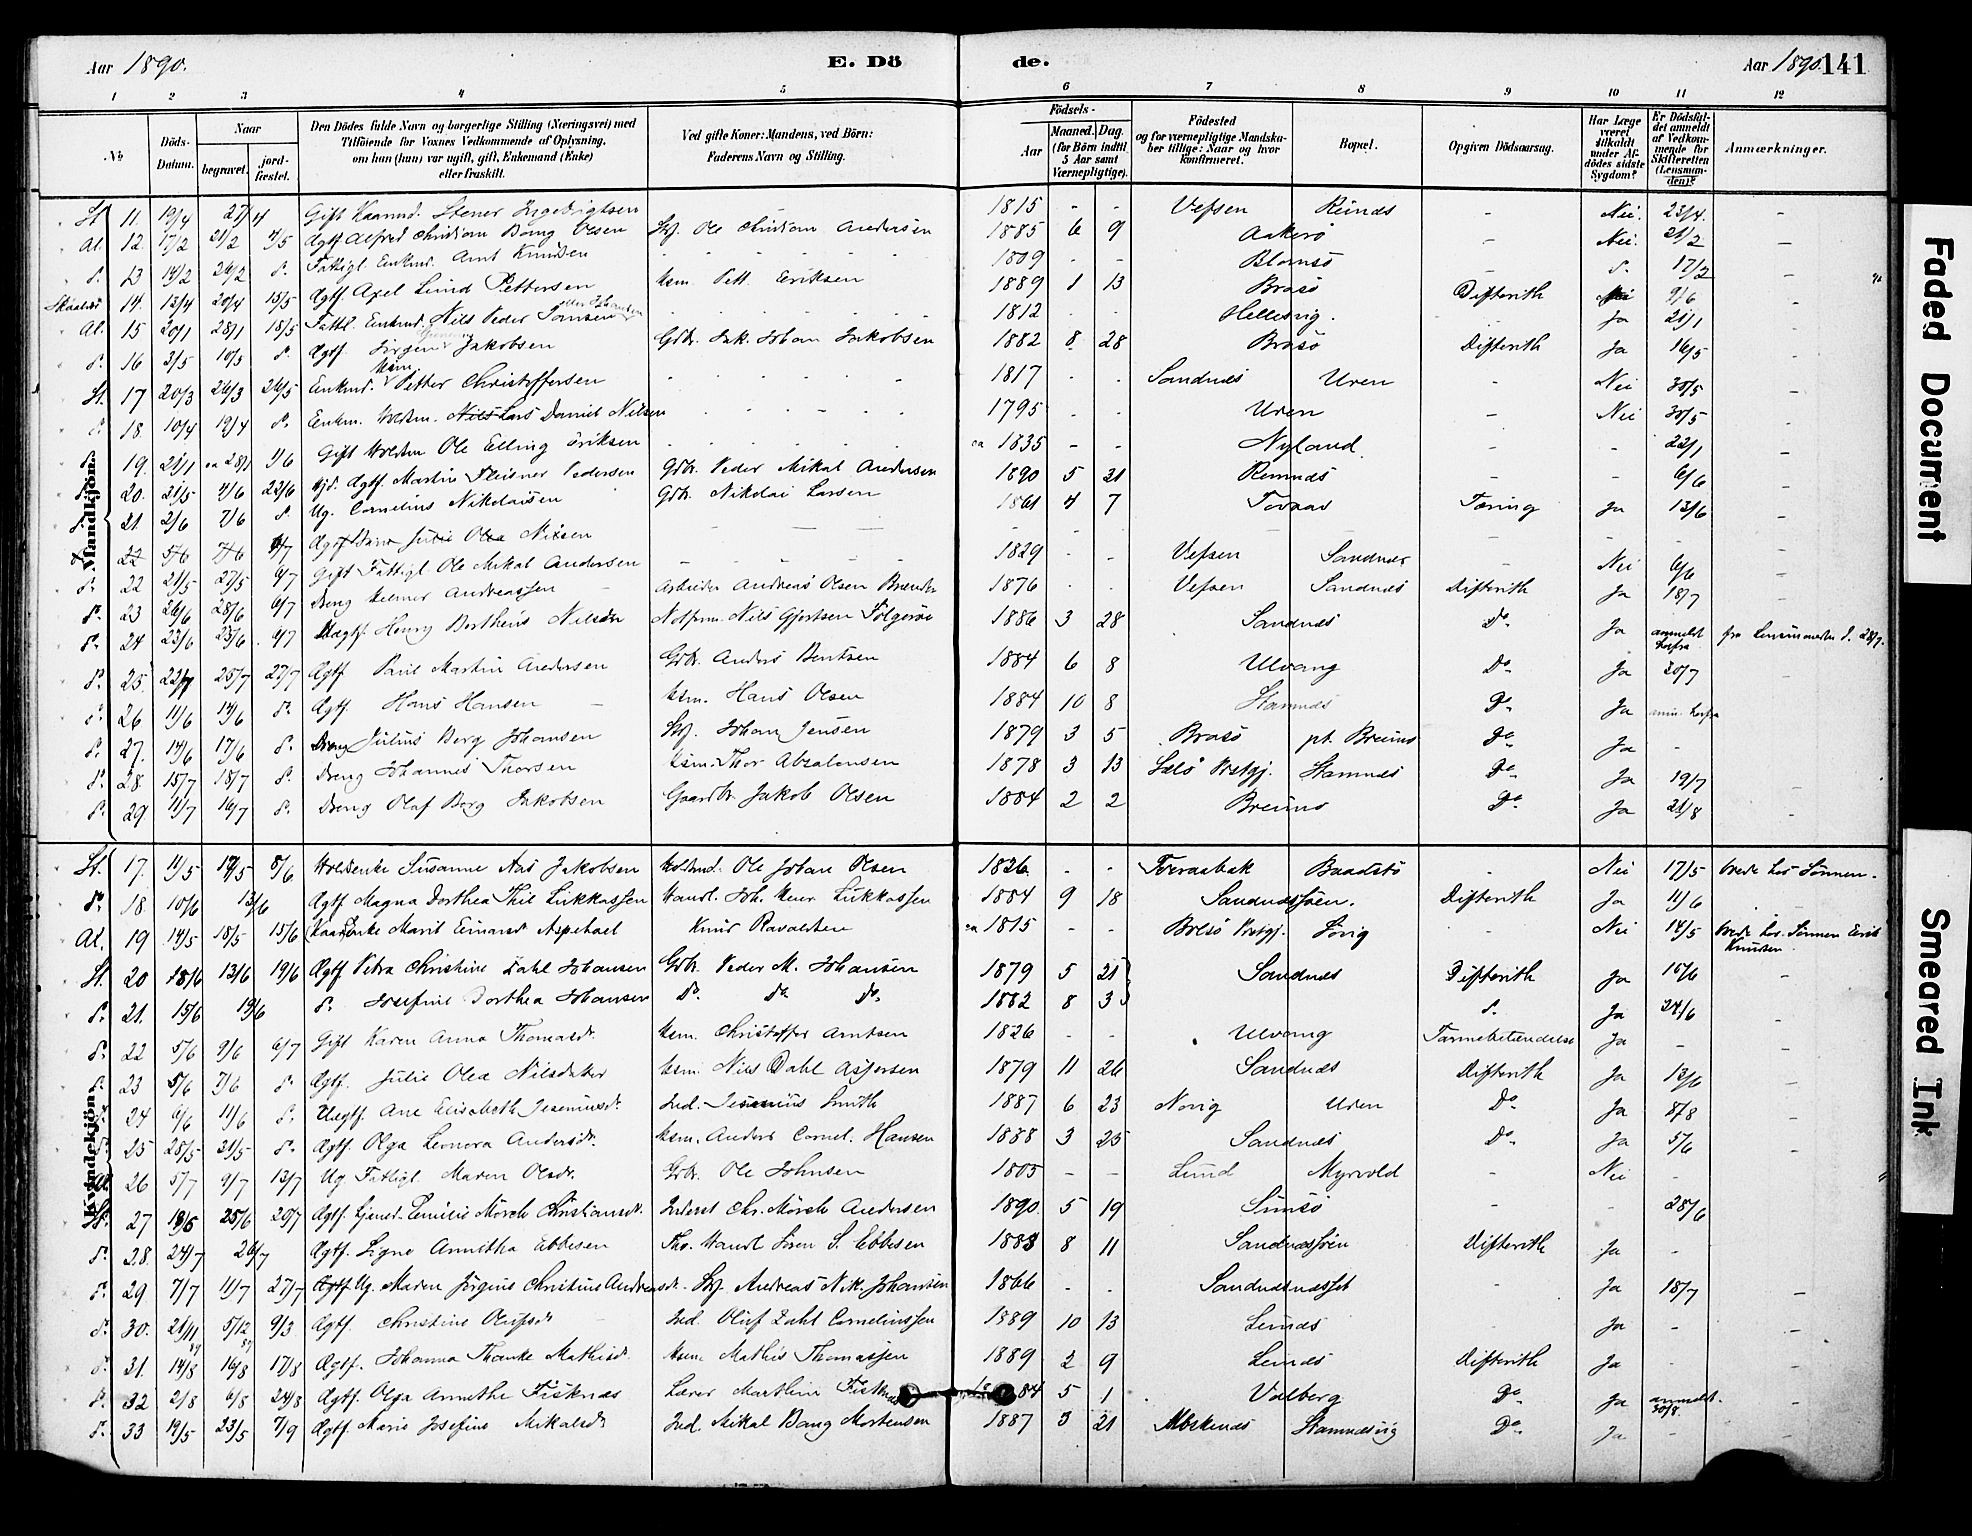 Aar 1890. E. Dö de. Aar 1890. 141
1 2 3 4 5 6 7 8 9 10 11 12
No
Döds-Datum.
Naar
begravet. jord-fæstet.
Den Dödes fulde Navn og borgerlige Stilling (Næringsvei) med
Tilföiende for Voxnes Vedkommende af Oplysning,
om han (hun) var ugift, gift, Enkemand (Enke)
eller fraskilt.
Ved gifte Koner: Mandens, ved Börn:
Faderens Navn og Stilling.
Födsels-
Aar Maaned. Dag.
(for Börn indtil
5 Aar samt
Værnepligtige).
Födested
og for værnepligtige Mandska-
ber tillige: Naar og hvor
konfirmeret.
Bopæl.
Opgiven Dödsaarsag.
Har Læge
været
tilkaldt
under Af-
dödes sidste
Sygdom?
Er Dödsfal-
det anmeldt
af Vedkom-
mende for
Skifteretten
(Lensman-
den)?
Anmærkninger.
Mandkjön.
St 11. 19/4 27/4 Gift Stener 1815 - - Vefsen Reines - Nei. 23/4. -
Al. 12. 17/2 21/2 4/5 Ægtf Alfred Christian Bang Olsen Ole Christian Andersen 1885 6 9 Aakerö - Nei. 21/2 -
d. 13 14/2 26/2 d. Fattigl. Enkmd. Arnt Knudsen 1809 - - Blomsö - d. 17/2 -
14. 13/4 20/4 15/5 Ægtf. Axel Lund Pettersen Pett. Eriksen 1889 1 13 Brasö Difterith Nei 9/6 -
Al. 15 20/1 28/1 18/5 Fattl. Enkmd. Nils Peder Jansen 1812 Hellesvig. Ja 21/1
d. 16 3/5 10/5 d. Ægtf. Jörgen Jakobsen Gdbr. Jak. Johan Jakobsen 1882 8 28 Brasö Difterith Ja 16/5 -
St. 17 20/3 26/3 26/5 Enkmd. Petter Christoffersen 1817 Sandnes Uren - Nei 30/5 -
d. 18. 10/4 19/4 d. Enkm. Lars Daniel Nilsen 1795 - - Uren - Nei 30/5 -
d. 19. 21/1 ca 28/1 1/6 Gift Ole Elling Eriksen ca 1835 - - Nyland. - - 22/1 -
d. 20. 21/5 4/6 22/6 Ægtf. Martin Pedersen Gdbr. Peder Mikal Andersen 1890 5 21 Remnes - - 6/6 -
d. 21 2/6 7/6 d. Ug. Cornelius Nikolaisen Gdbr. Nikolai Larsen 1861 4 7 Tovaas Tæring Ja 13/6 -
22 5/6 7/6 6/7 Ægtf Barn Julie Olea Nilsen - - -
d. 22 21/5 27/5 6/7 Gift Fattigl Ole Mikal Andersen - - - 1829 - - Vefsen Sandnes - Nei 6/6 -
d. 23 26/6 28/6 6/7 Dreng Helmer Andreassen Arbeider Andreas Olsen 1876 - - Vefsen Sandnes Difterith Ja 18/7 -
d. 24 23/6 23/6 6/7 Henry Berthens Nilsen Nils Gjertsen 1886 3 28 Sandnes Do. Ja anmeldt herfra fra Lensmanden d. 28/7.
d. 25. 22/7 25/7 27/7 Ægtf Paul Martin Andersen Gdbr. Anders Bentsen 1884 6 8 Ulvang Do. Ja 30/7 -
d. 26 11/6 14/6 d. Ægtf. Hans Hansen Hans Olsen 1884 10 8 Stamnes Do. Ja anm. herfra
d. 27. 14/6 17/6 d. Dreng Julius Berg Johansen Johan Jensen 1879 3 5 Brasö pt. Breimo Do. Ja -
d. 28. 15/7 18/7 d. Dreng Johannes Thorsen Thor Abralonsen 1878 3 13 Stamnes Do. Ja 19/7 -
d. 29 11/7 16/7 d. Dreng Olaf Berg Jakobsen Gaardbr. Jakob Olsen 1884 2 2 Breimo Do. Ja 21/8 -
Kvindekjön.
St. 17. 11/5 17/5 8/6 Susanne Aas Jakobsen Ole Johan Olsen 1826 - - Baadstö - Nei 17/5 hos Sönnen.
d. 18. 10/6 13/6 Ægtf Magna Dorthea Thil Lukkassen Handl. Joh. Lukkassen 1884 9 18 Sandnessöen. Difterith Ja 11/6 -
Al. 19 14/5 18/5 15/6 Marit Einarsd. Aspehael Knut Ravaldsen ca 1815 - - Sövig - Nei 14/5 hos Sönnen Eerik Knutsen.
St. 20 18/6 13/6 19/6 Ægtf Petra Christine Dahl Johansen Gdbr. Peder M. Johansen 1879 5 21 Sandnes Difterith Ja 16/6 -
d. 21. 15/6 19/6 d. Josefine Dorthea Johansen Do. Do. Do. 1882 8 3 d. Ja 24/6 -
d. 22 5/6 9/6 6/7 Gift Karen Anna Thomasd. Christoffer Arntsen 1826 - - Ulvang Tarmebetændelse Ja - -
d. 23 5/6 7/6 d. Ægtf. Julie Olea Nilsdatter Nils Dahl Asjersen 1879 11 26 Sandnes Difterith Ja 13/6 -
d. 24 6/6 11/6 d. Uægtf. Ane Elisabeth Jeseniusd. Ind. Jesenius Smith 1887 6 23 Novig Uren Do. Ja 8/8 -
d. 25 28/5 31/5 d. Ægtf. Olga Leonora Andersd. Anders Cornel. Hansen 1888 3 25 Sandnes Do. Ja 5/6 -
Al. 26 5/7 9/7 13/7 Ug Fattigl. Maren Olsd. Gdbr. Ole Johnsen 1805 - - Lund Myrvold - Nei -
St. 27 19/5 25/6 20/7 Ægtf. Emilie Mörch Christiansd. Inderst Chr. Mörch Andersen 1890. 5 19 Simsö - - 28/6
d. 28. 24/7 26/7 Ægtf. Signe Annetha Ebbesen Handl Sören S. Ebbesen 1883 8 11 Sandnessöen Difterith Ja - -
d. 29 7/7 11/7 27/7 Ug. Maren Jörgine Christine Andreasd. Andreas Nik. Johansen 1866 - - Sandnesnesset - Ja 18/7 -
d. 30. 21/11 89 5/12 89 9/3 Ægtf. Christine Olufsd. Ind. Oluf Dahl Corneliussen 1889 10 13 Leines Ja - -
d. 31. 14/8 16/8 17/8 Ægtf. Johanna Thanke Mathisd. Mathis Thomassen 1889 2 9 Leines Difterith Ja - -
d. 32 2/8 6/8 24/8 Ægtf. Olga Annethe Fisknes Lærer Marthin Fisknes 1884 5 1 Valberg Do. Ja anmeldt. 30/8. -
d. 33 19/5 23/5 7/9 Ægtf. Marie Josefine Mikalsd. Ind. Mikal Bang Mortensen 1887 3 21 Stamnesvig Do. Ja - -
Faded Document
Smeared Ink